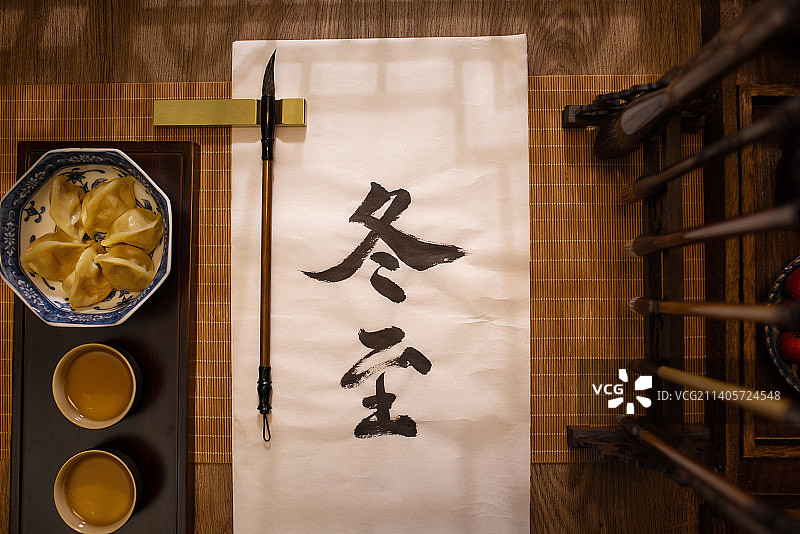 冬
至
VCG
VCG211405724548